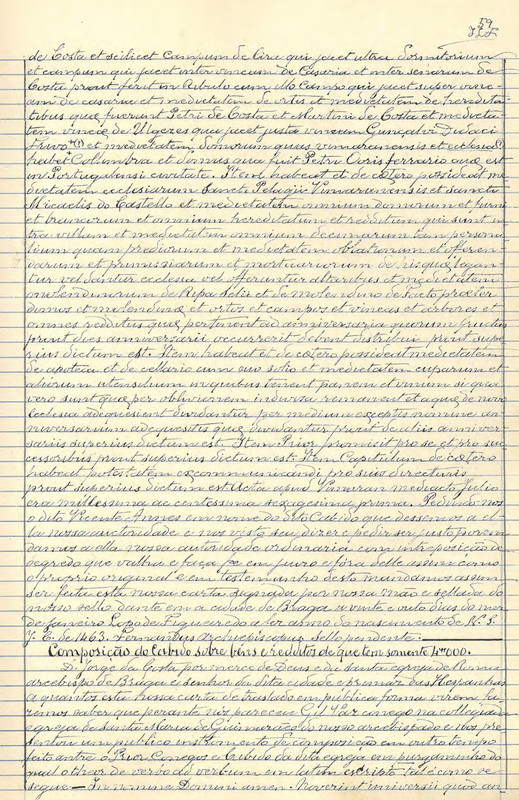 59
de Costa et scilicet Campum de Cira qui jacet ultra Dormitorium
et campum qui jacet inter vineam de Casaria et inter senaram de
Costa prout ferit in cum illo Campo qui jacet super vine-
am de casaria et medietatem de ortis et medietatem de heredita-
tibus quæ fuerunt Petri de Costa et Martini de Costa et medieta-
tem vineæ de Ugezes qua jacet justa vineam Gunçalvi Didaci
et medietatem domorum quas vimaranensis et ecclesia
habet Collimbria et domus qua fuit Petri ferrario quæ est
in Portugalensi civitate. Item habeat et de cætero possideat me-
dietatem ecclesiarum Sancti Pelagii Vimaranensis et Sancti
Micaelis do Castello et medietatem omnium domorum et furni
et et omnium hereditatem et reddituum qui sunt in-
tra villam et medietatem omnium decimarum tam persona-
lium quam prediorum et medietatem oblationum et offeren-
darum et primissiarum et mortuariorum de his quæ legan-
tur vel dantur ecclesia vel offeruntur altaribus et medietatem
molendinorum de Ripa Selii et de molendino de facto præter
domos et molendinos et ortos et campos et vineas et arbores et
omnes redditus quæ pertinent ad anniversaria quorum fructus
prout dies anniversarii occurrerit debent distribui prout supe-
rius dictum est. Item habeat et de cætero possideat medietatem
de apoteca et de cellario cum suo sitio et medietatem cuparum et
aliorum utensilium in quibus tenent panem et vinum si qua
vero sunt quæ per oblivionem indivisa remanent et a quæ de novo
ecclesia adquisierit dividantur per medium exceptis nomine an-
niversariorum adequesitis quæ dividantur prout de aliis anniver-
sariis superius dictum est. Item Prior promisit pro se et pro suc-
cessoribus prout superius dictum est. Item Capitulum de cætero
habeat potestatem excommunicandi pro suis directuris
prout superius dictum est. Acta apud Vimaran mediacto Julio
era millessima ducentessima sexagesima prima. Pedindo-nos
o dito Vicente Annes em nome do dito Cabido que dessemos a el-
la nossa auctoridade e nos visto seu dizer e pedir ser justo porem
damos a ella nossa autoridade ordinaria com interposição de
degredo que valha e faça fé em juizo e fóra delle assim como
o proprio original e em testemunho desto mandamos assim
ser feita esta nossa carta signada por nossa mão e sellada do
nosso sello dante em a cidade de Braga a vinte e oito dias do mez
de Janeiro Lopo de Figueiredo a fez anno do nascimento de N. S.
J. C. de 1463. Fernandus Archiepiscopus Sello pendente.
Composição do Cabido sobre bens e reditos de que tem somente 1:000.
D. Jorge da Costa por merce de Deus e da santa egreja de Roma
arcebispo de Braga e senhor da dita cidade e primaz das Hespanhas
a quantos esta nossa carta de traslado em publica forma virem fa-
zemos saber que perante nós pareceu Gil Vaz conego na collegiada
egreja de Santa Maria de Guimarães do nosso arcebispado e nos pre-
sentou um publico instromento de composição em outro tempo
feito antre o Prior Conegos e Cabido da dita egreja em purgaminho do
qual o theor de verbo ad verbum em latim escripto tal é como se
segue — In nomine Domini amen. Noverint universi quod an-